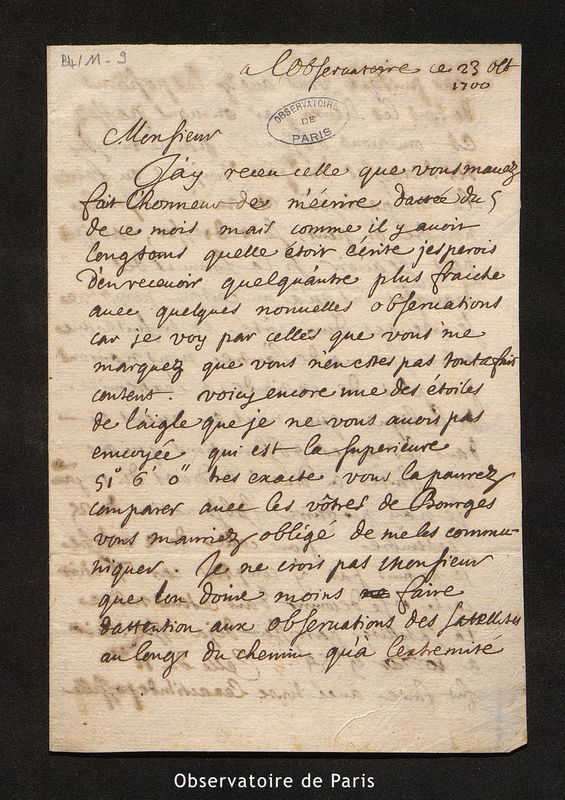 B4/11-9
a l'Observatoire ce 23 Oct
1700
OBSERVATOIRE
DE
PARIS.
Monsieur
J'ay receu celle que vous m'auez
fait l'honneur de m'écrire dattée du 5
de ce mois mais comme il y auoit
longtems qu'elle étoit écrite j'esperois
d'en receuoir quelqu'autre plus fraiche
auec quelques nouuelles observations
car je voy par celles que vous me
marquez que vous n'en estes pas tout a fait
content. voicy encore une des étoiles
de l'aigle que je ne vous auois pas
enuoyée qui est la superieure
51° 6' 0" tres exacte vous la pourrez
comparer auec les vôtres de Bourges
vous m'auriez obligé de me les commu-
niquer. Je ne crois pas Monsieur
que l'on doiue moins faire
d'attention aux Observations des satellites
au long du chemin qu'à l'extremité
Observatoire de Paris